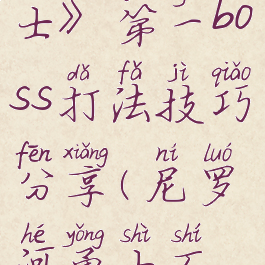 士》第一bo
dǎ fǎ jì qiǎo
ss打法技巧
fēn xiǎng ní luó
分享(尼罗
hé yǒng shì shí
河勇士石